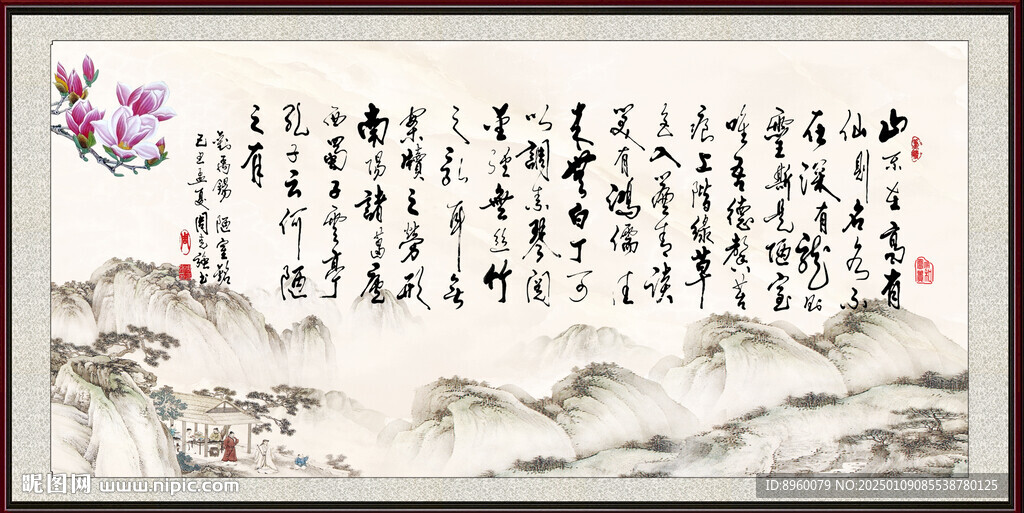 山不在高有
仙則名水不
在深有龍則
靈斯是陋室
唯吾德馨苔
痕上階綠草
色入簾青談
笑有鴻儒往
来無白丁可
以調素琴閱
金經無絲竹
之亂耳无
案牘之勞形
南陽諸葛廬
西蜀子雲亭
孔子云何陋
之有
劉禹錫 陋室銘
己丑孟夏周强书
昵图网 www.nipic.com
ID:8960079 NO:20250109085538780125